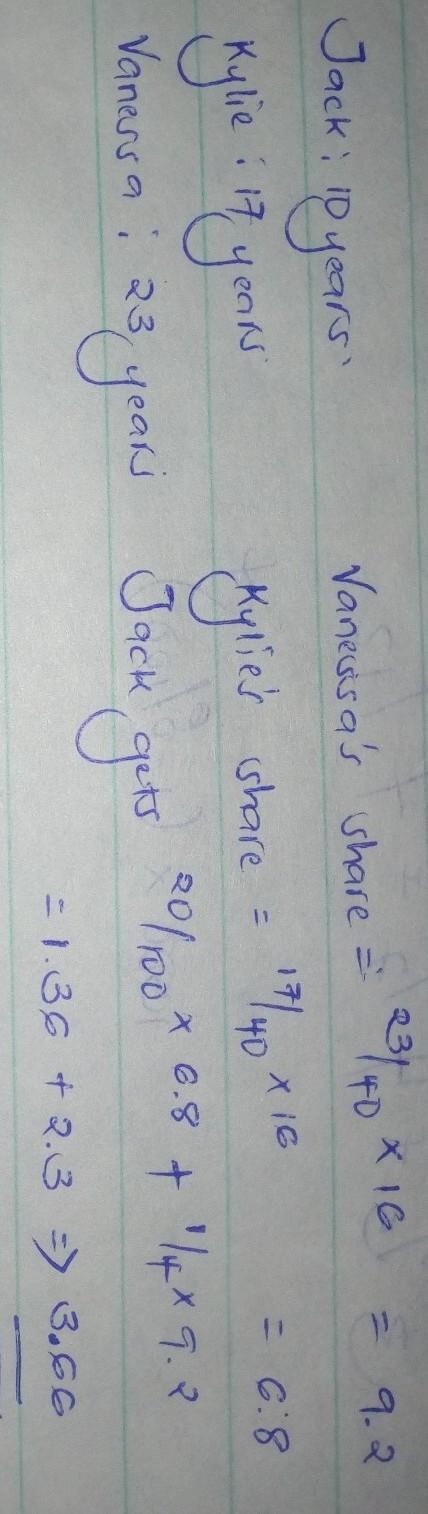 Jack : 10 years
Kylie : 17 years
Vanessa : 23 years
Vanessa's share = 23/40 × 16 = 9.2
Kylie's share = 17/40 × 16 = 6.8
Jack gets 20/100 × 6.8 + 1/4 × 9.2
= 1.36 + 2.3 ⇒ 3.66